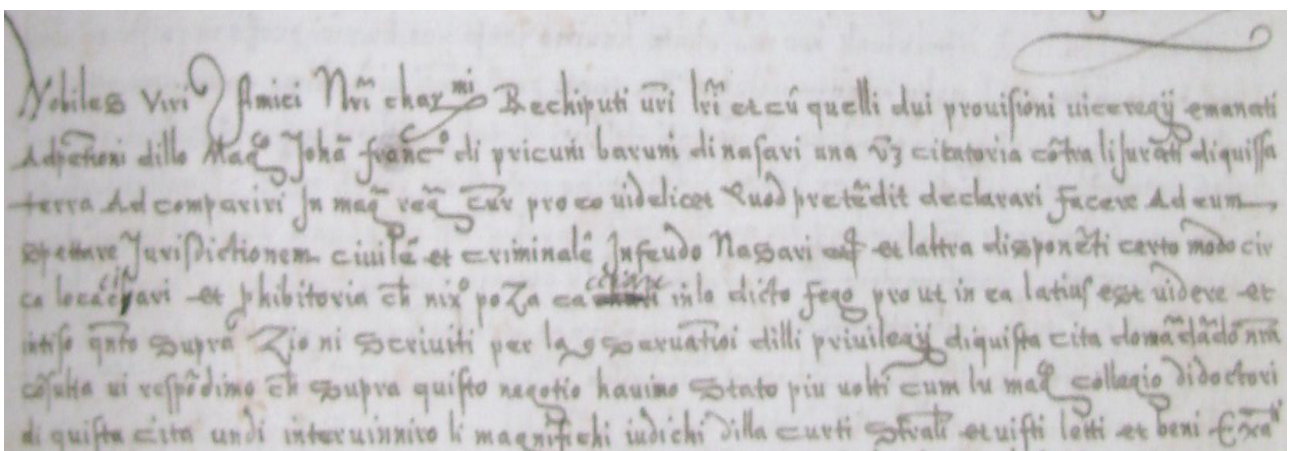 Nobiles Viri Amici Nri char mi Rechiputi vri lri et cu quelli dui prouisioni uiceregij emanati
Adpetioni dillo Mag Joha franco di pricuni baruni di nasari una citatoria cotra li jurati di quissa
terra Ad compariri In mag reg Cur pro eo uidelicet Quod pretedit declarari facere Ad eum
spettare Jurisdictionem ciuile et criminale Infeudo Nassari et lattra disponeti certo modo cir
ca loca et phibitoria ch nixo poza cacciare inlo dicto fego pro ut in ea latius est uidere et
intiso qnto supra Zio ni scriuiti per la osseruatioi dilli priuilegij di quista cita domadado nra
cosulta ui respodimo ch supra quisto negotio hauimo stato piu uolti cum lu mag collegio di doctori
di quista cita undi interuinniro li magnifichi iudichi dilla curti et uisti letti et beni